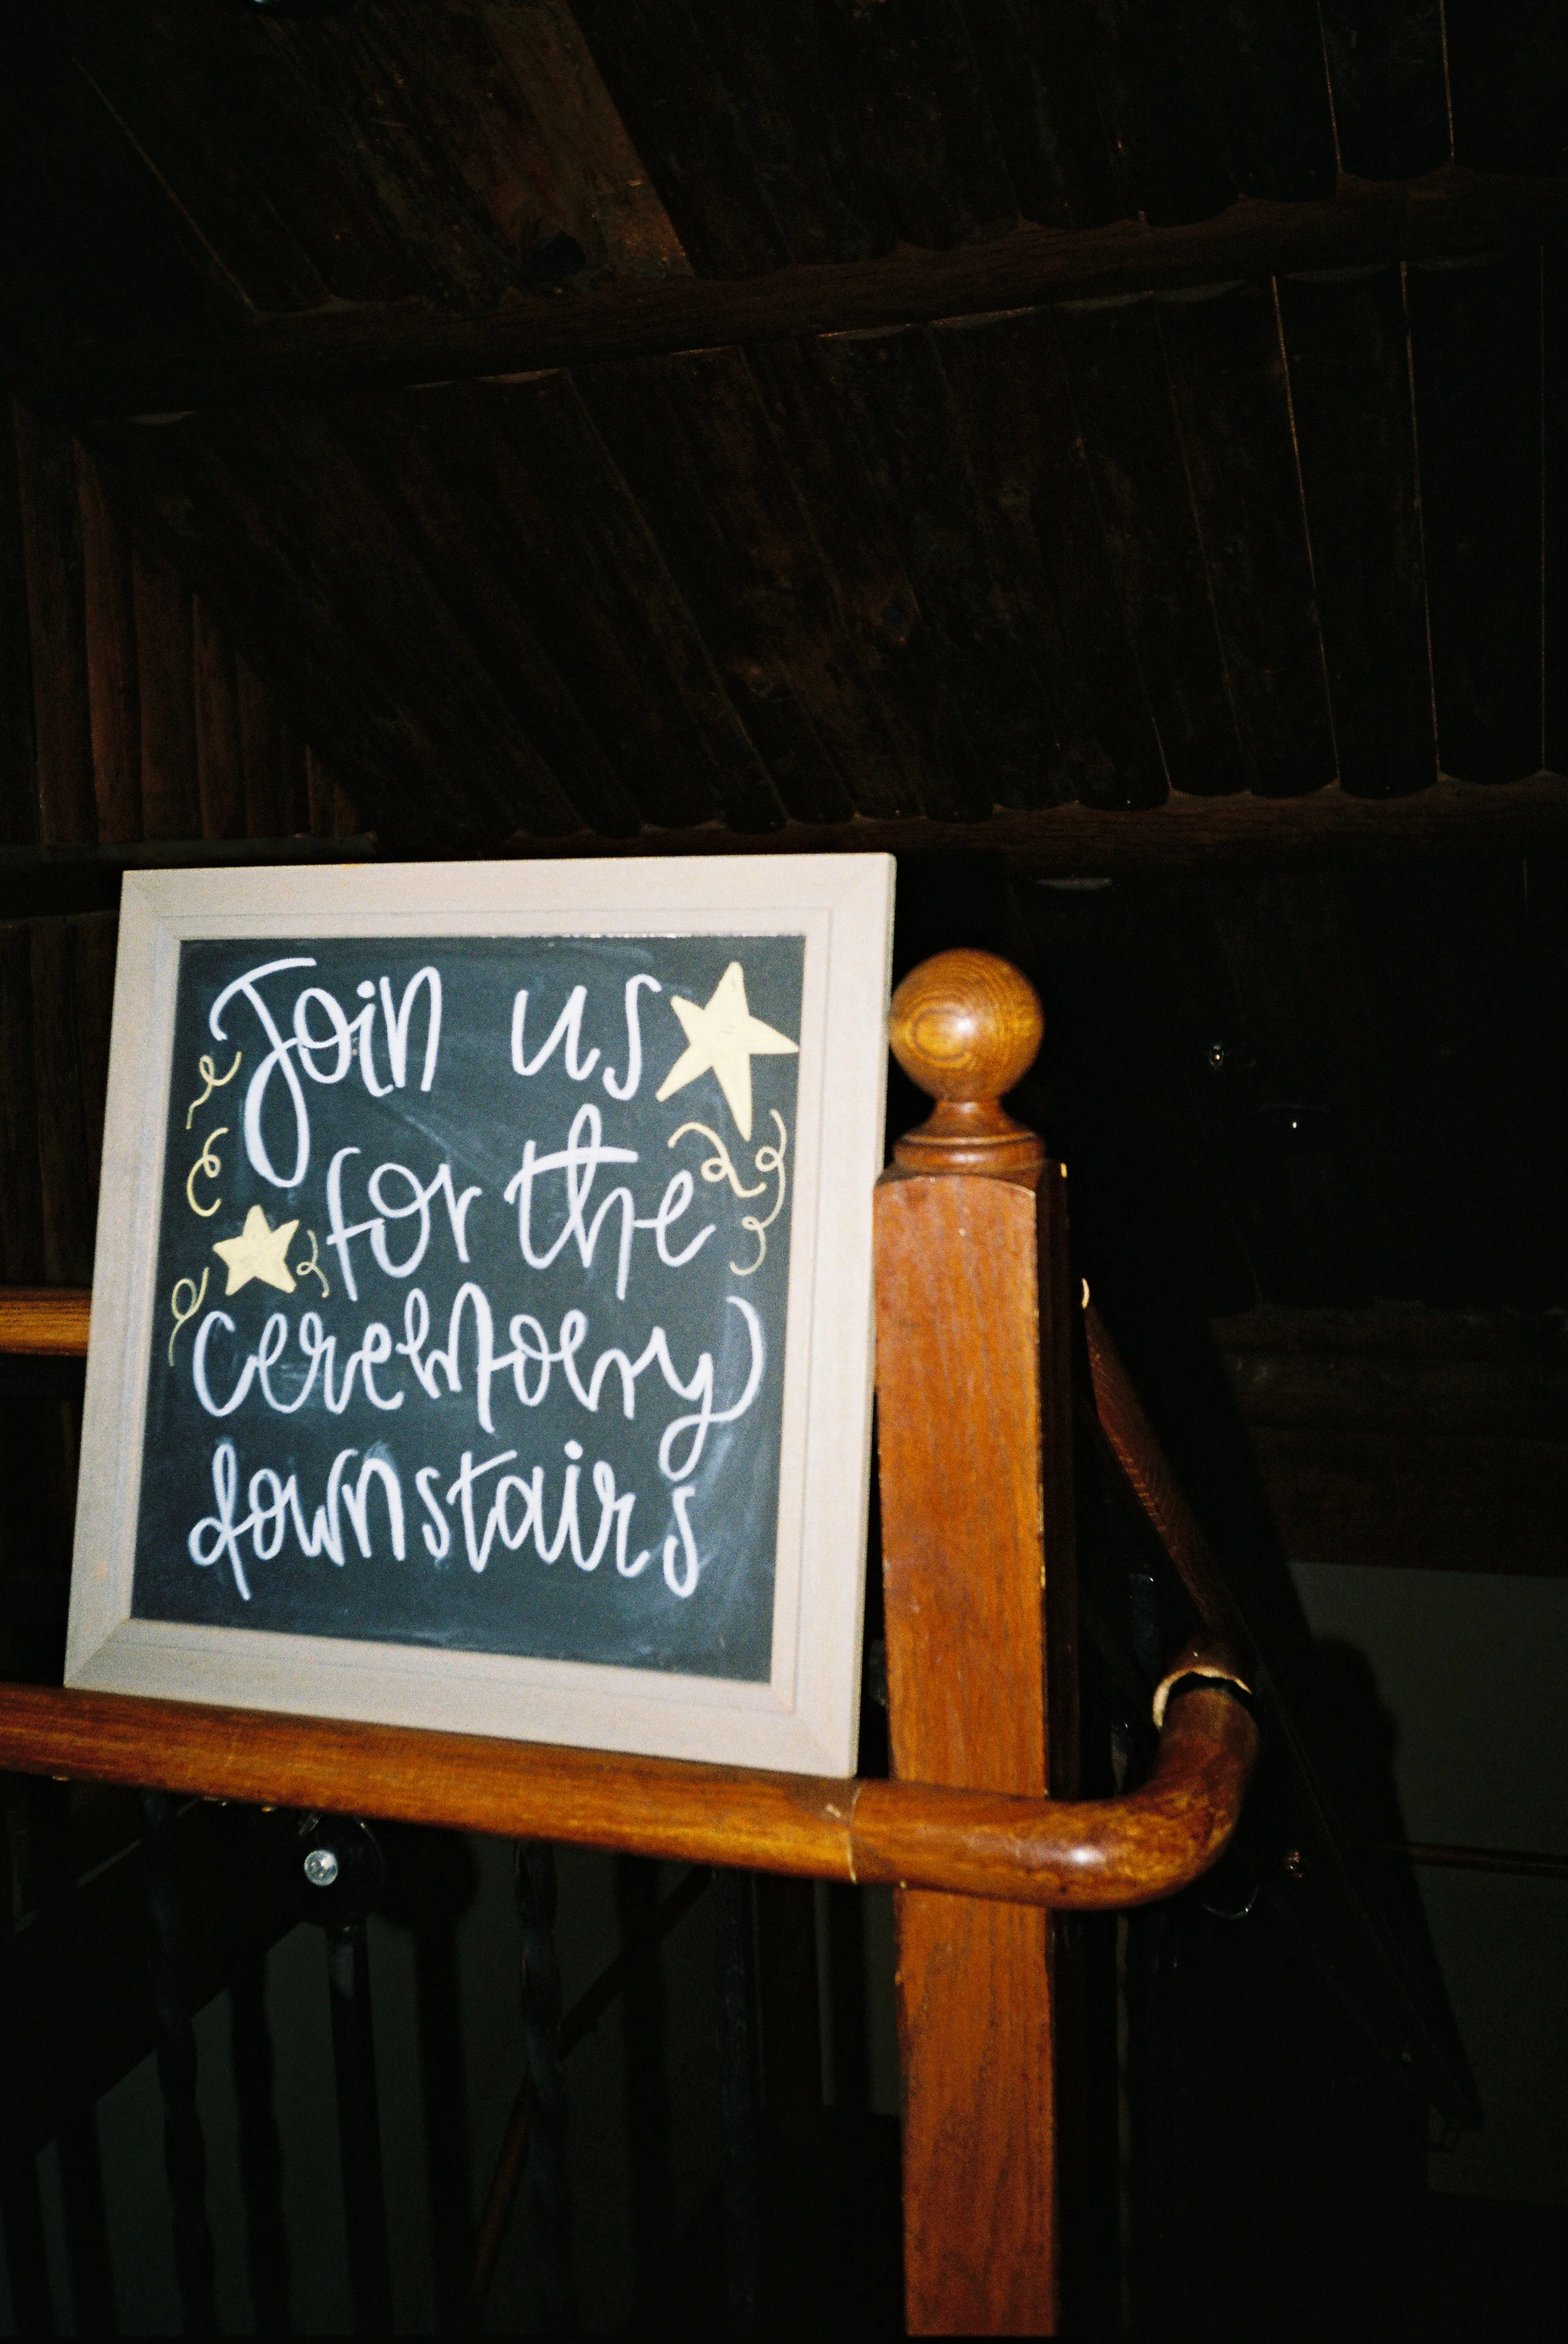 Join us
for the
ceremony
downstairs